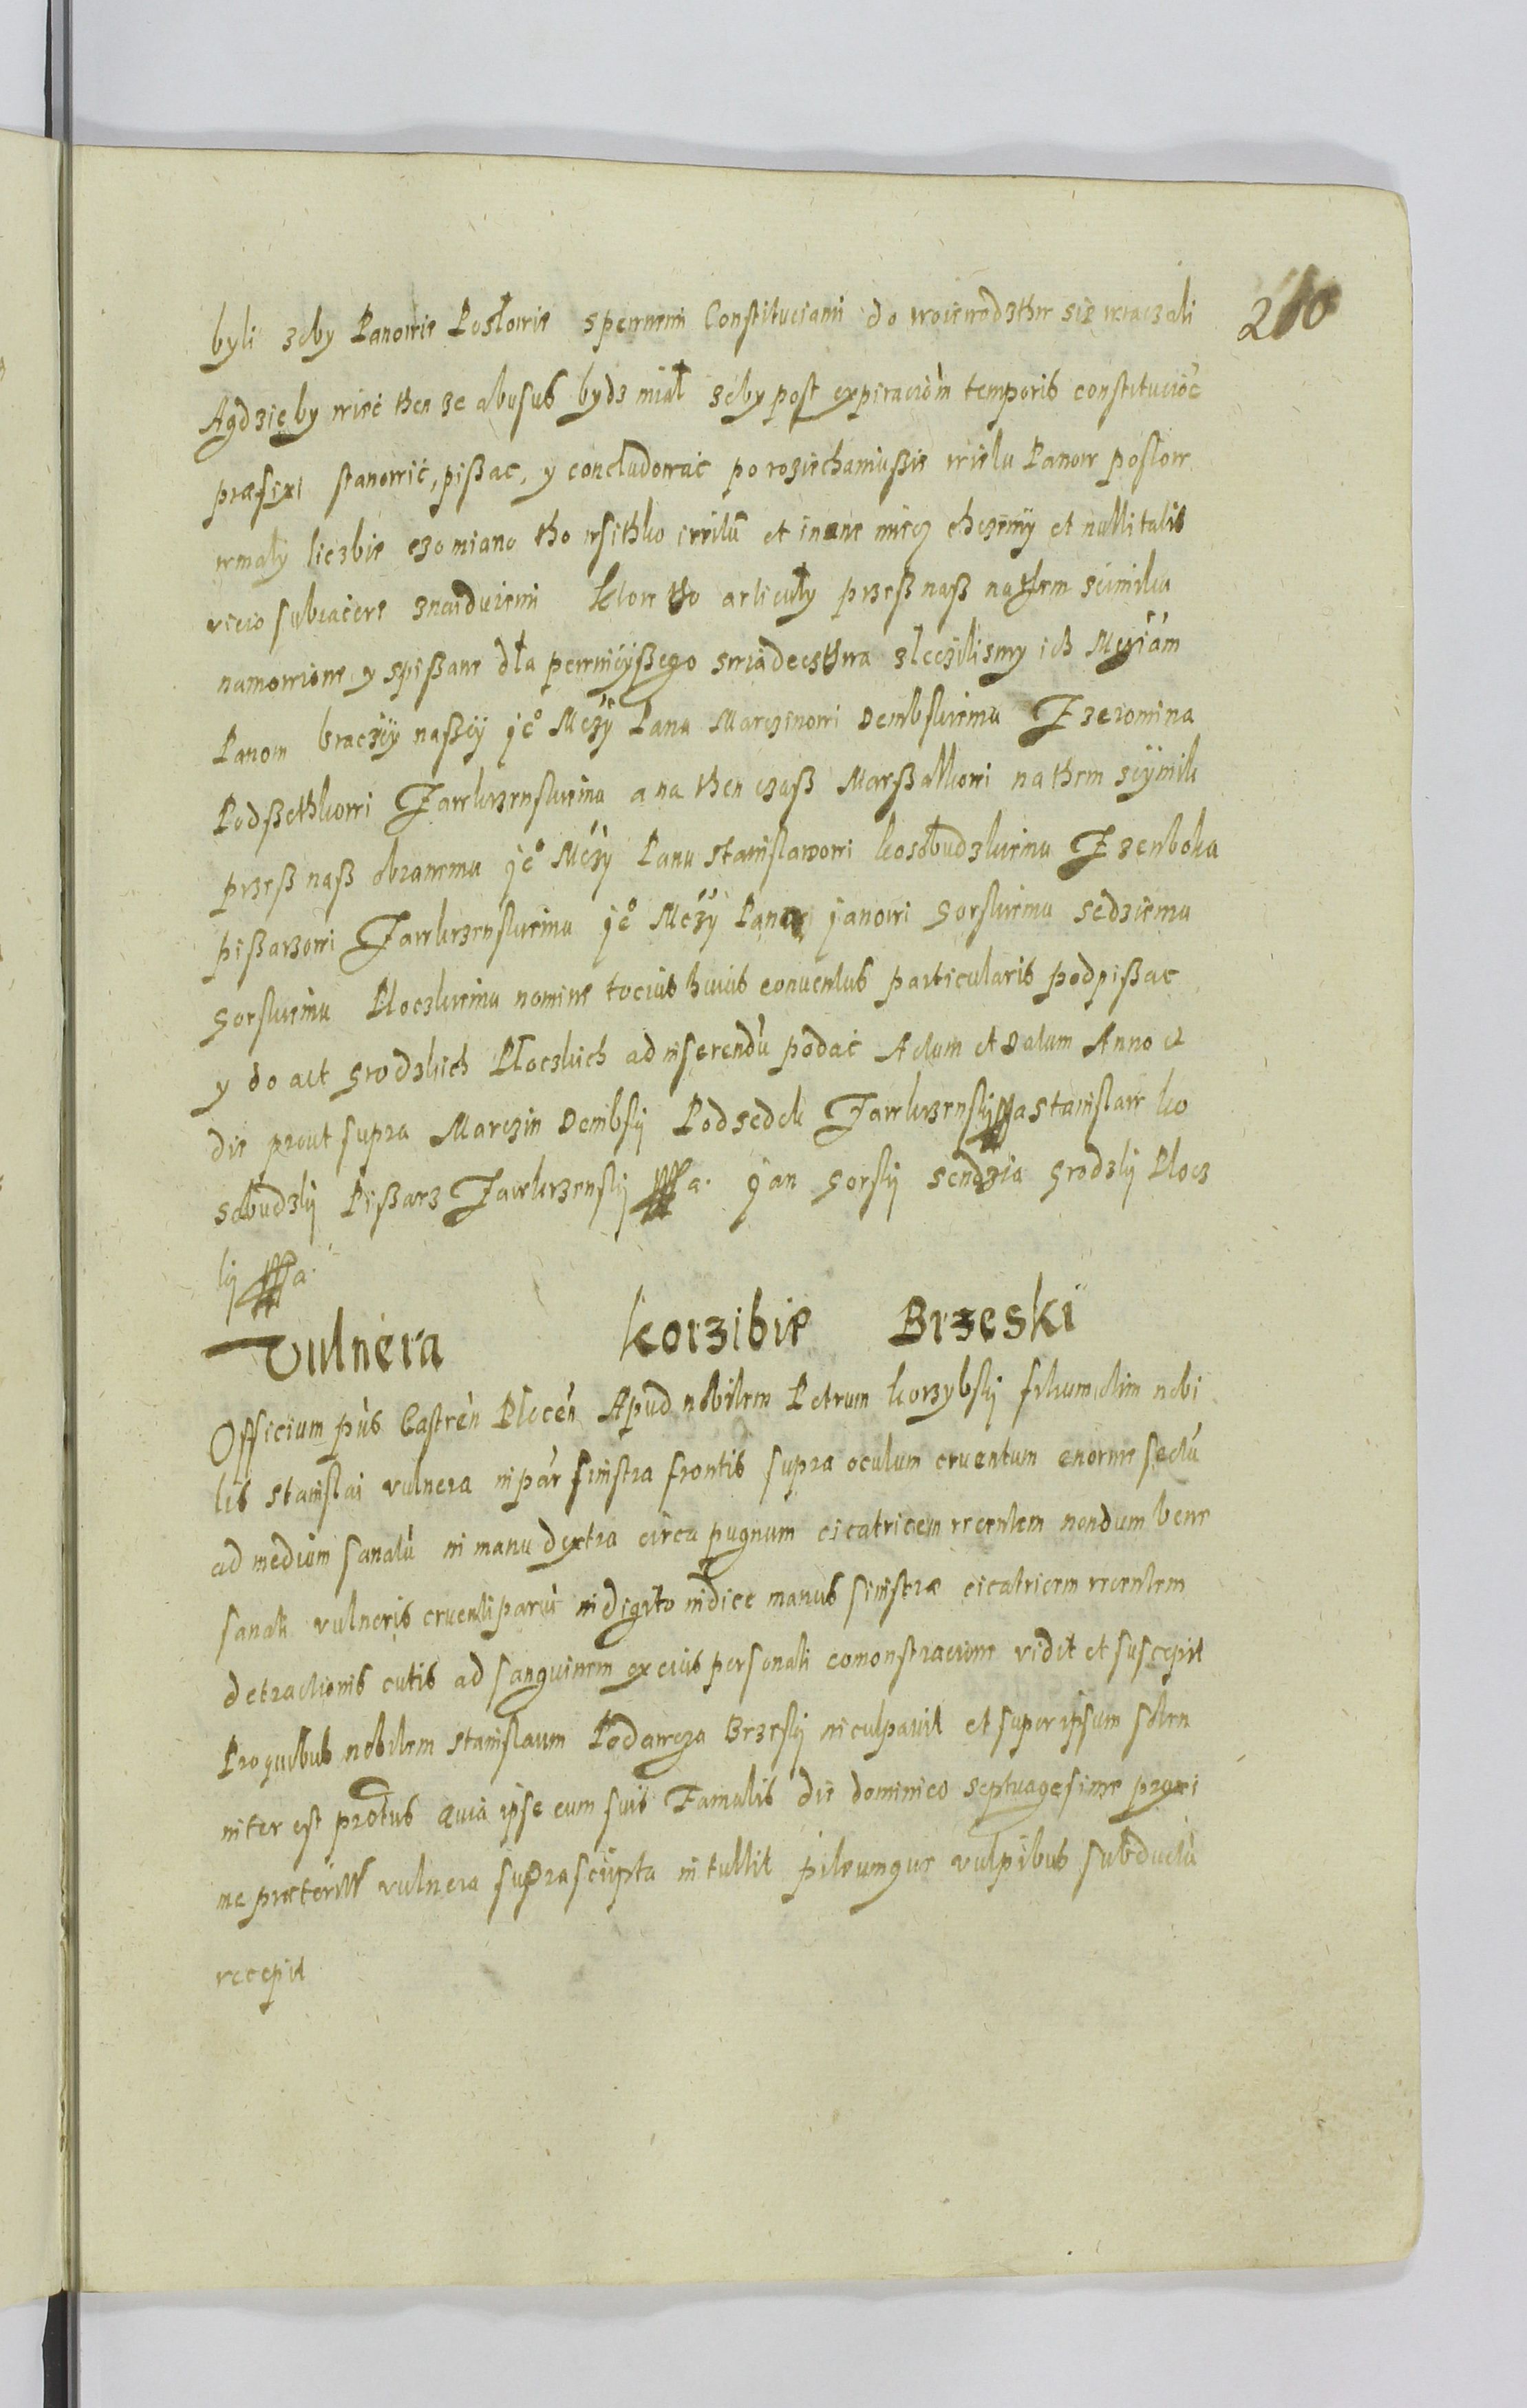 210
byli zeby Panowie Posłowie spewnemi Constituciami do woiewodzthw sie wraczali
Agdzieby wiec then ze abusus bydz miał zeby post expiracióm temporis constitucióē
præfixi stanowić, pißac, y concludowac po roziechaniußie wielu Panow posłow
wmały liczbie czo miano tho wsithko irritū et inane miecz chczemy et nullitatis
vicio subiacere znaiduiemi ktore tho articuły przeß naß nathem seimiku
namowione y spißane dla pewniejßego swiadecsthwa zleczilismy ich Mcziám
Panom braczÿ naßÿ jeº Mczÿ Panu Marczinowi Dembskiemu Z Zeromina
Podßethkowi Zawkrzenskiemu a na then czaß Marßalkowi na them sÿimik
przeß naß obranemu jeº Mczÿ Panu Stanisławowi kosobudzkiemu Z Zenboka
pißarzowi Zawkrzenskiemu jeº Mczÿ Panu janowi Gorskiemu sedziemu
Gorskiemu Płoczkiemu nomine tocius huius conuentus particularis podpißac
y do act Grodzkich Płoczkich ad inserendū podać Actum et Datum Anno et
die prout supra Marczin Dembskÿ Podsedek Zawkrzenskÿ a Stanisław ko
sobudzkÿ Pißarz Zawkrzenskÿ a. Jan Gorskÿ sendzia Grodzkÿ Płocz
kÿ a.
Vulnera korzibie Brzeski
Officium pńs Castreń Ploceń Apud nobilem Petrum korzybskÿ filium olim nobi
lis Stanislai vulnera in pár sinistra frontis supra oculum cruentum enorme sectū
ad medium sanatū in manu dextra circa pugnum cicatricem recentem nondum bene
sanati vulneris cruenti parui in digito indice manus sinistræ cicatricem recentem
detractionis cutis ad sanguinem ex eius personali comonstracione vidit et suscepit
Pro quibus nobilem Stanislaum Podarcza Brzeskÿ inculpauit et super ipsum solen
niter est protus Quia ipse cum suis Famulis die dominico septuagesime proxi
me præterito vulnera suprascripta intullit pileumque vulpibus subductū
recepit